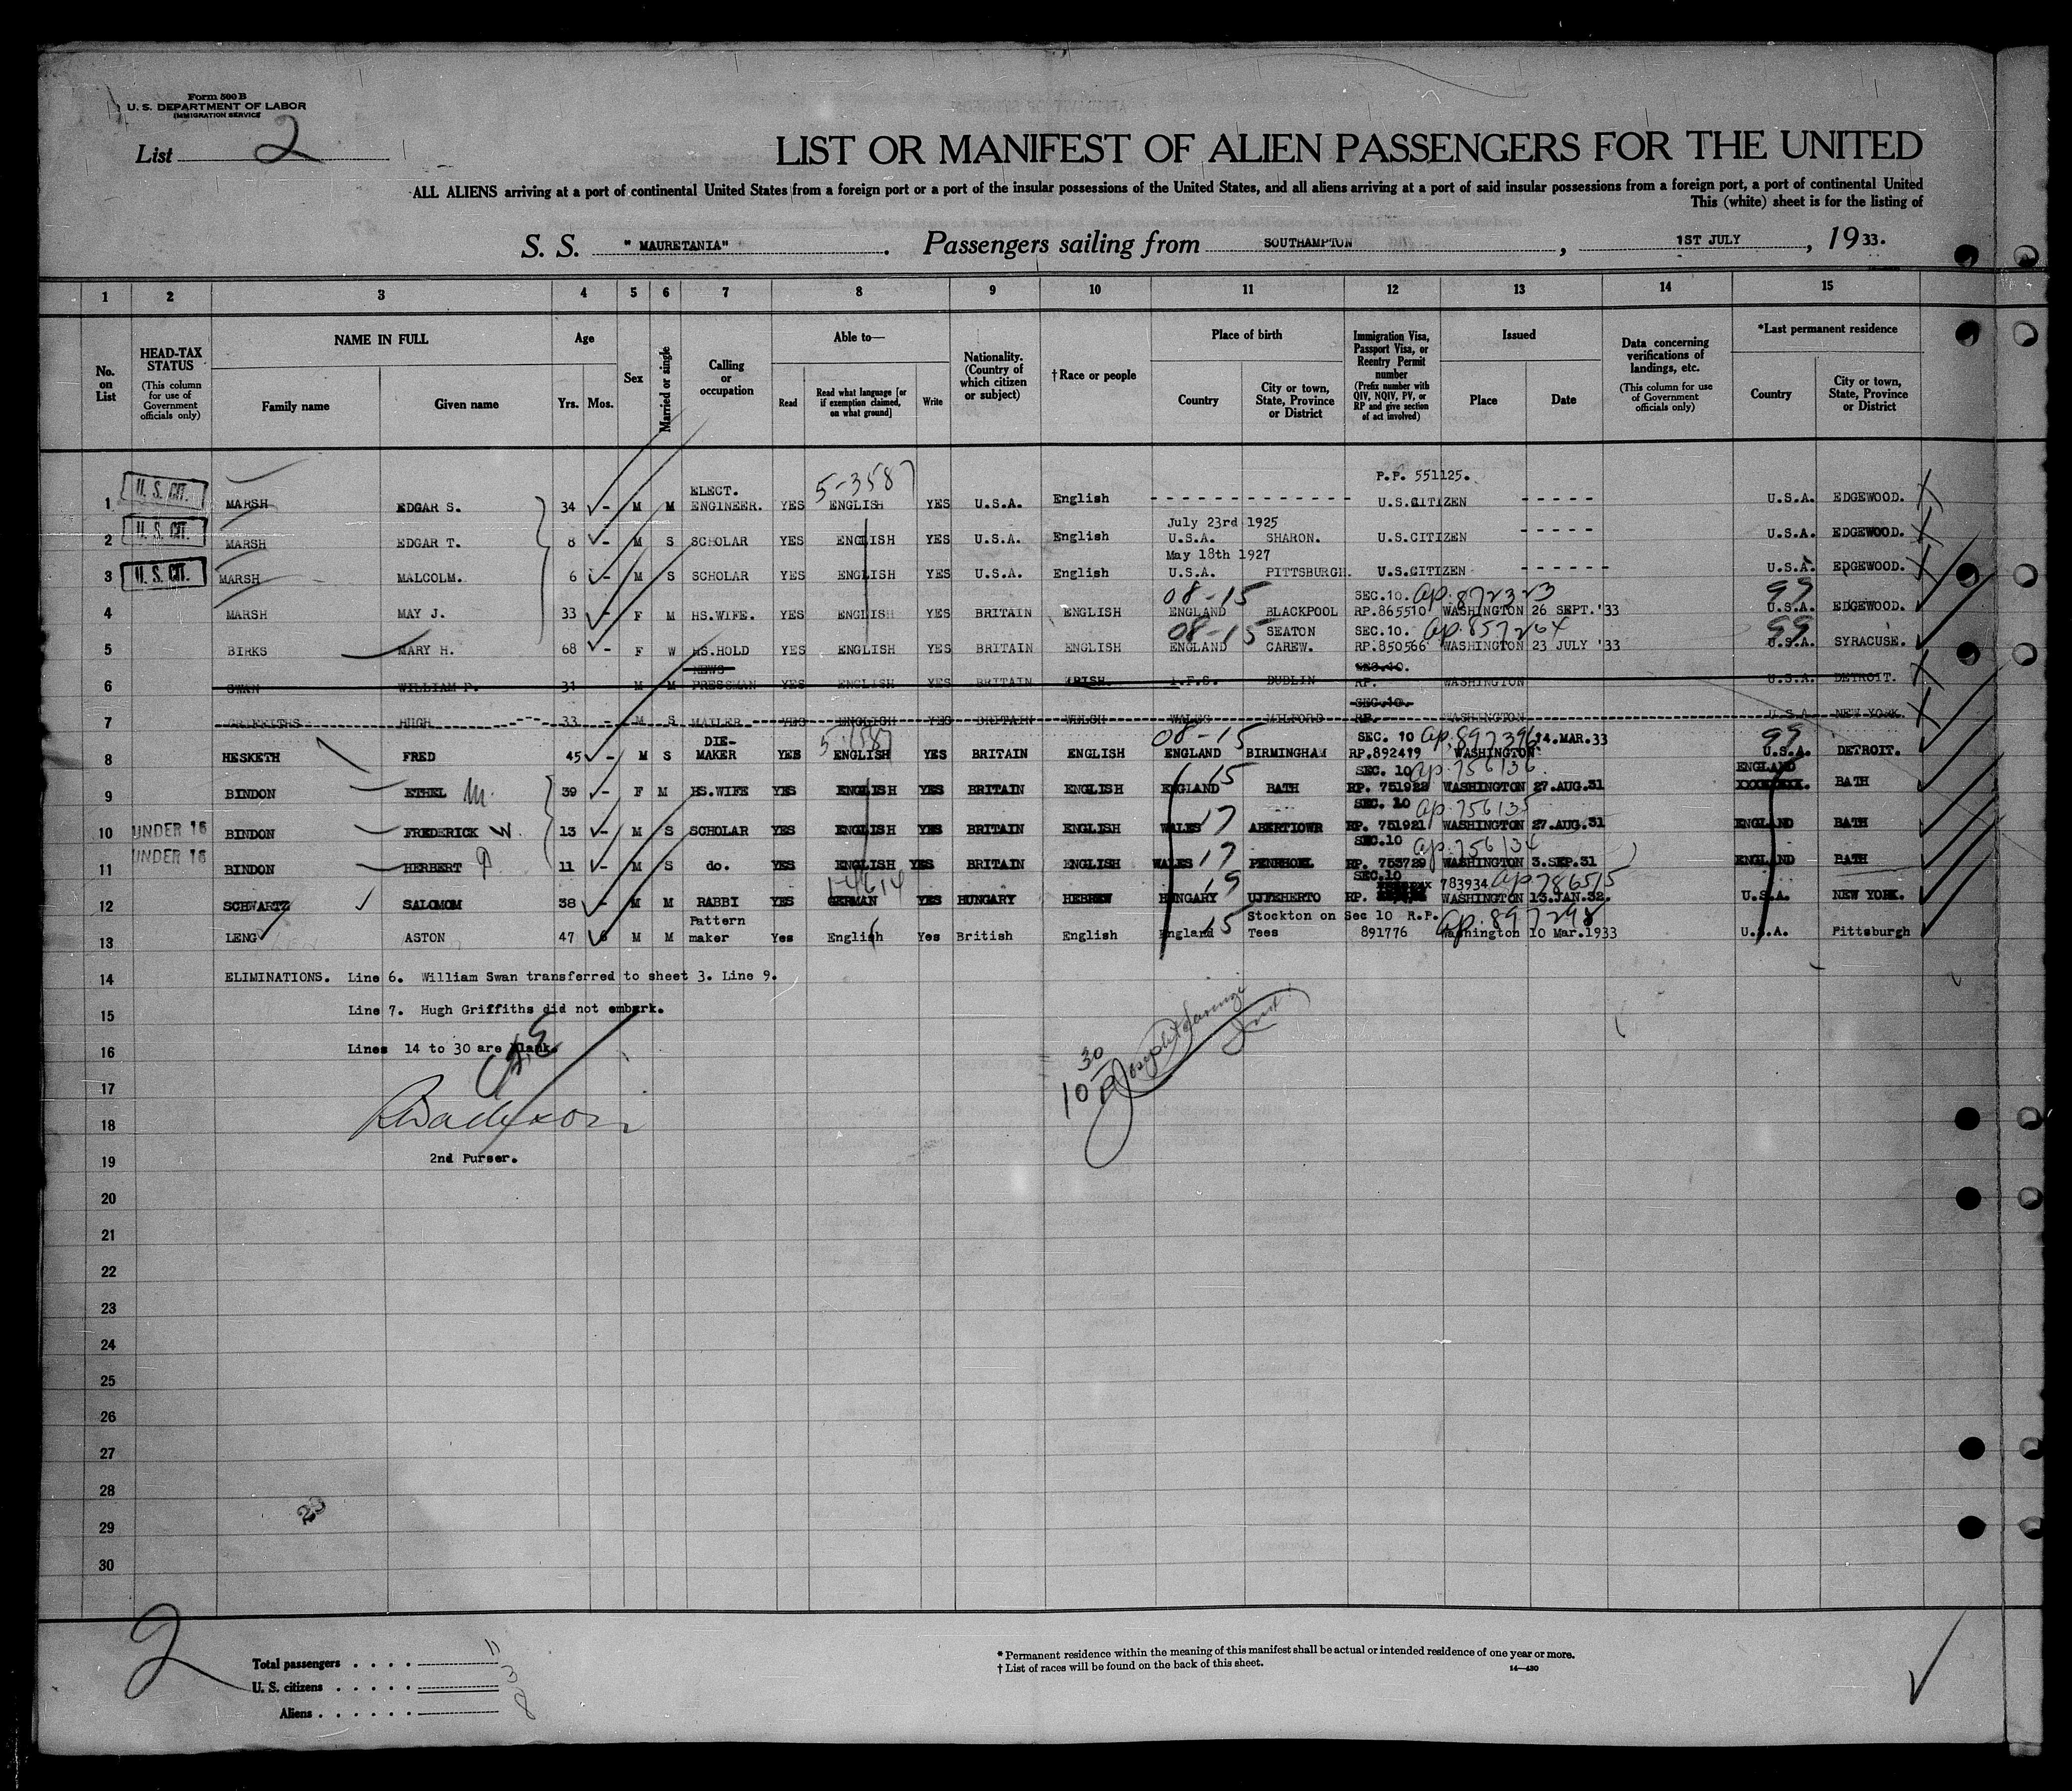 Form 500 B
U. S. DEPARTMENT OF LABOR
IMMIGRATION SERVICE
List 2
LIST OR MANIFEST OF ALIEN PASSENGERS FOR THE UNITED
ALL ALIENS arriving at a port of continental United States from a foreign port or a port of the insular possessions of the United States, and all aliens arriving at a port of said insular possessions from a foreign port, a port of continental United
This (white) sheet is for the listing of
S. S. "MAURETANIA". Passengers sailing from SOUTHAMPTON, 1ST JULY, 1933.
1 2 3 4 5 6 7 8 9 10 11 12 13 14 15
No. on List
HEAD-TAX STATUS (This column for use of Government officials only)
NAME IN FULL
Family name Given name
Age
Yrs. Mos.
Sex
Married or single
Calling or occupation
Able to—
Read Read what language [or if exemption claimed, on what ground] Write
Nationality. (Country of which citizen or subject)
†Race or people
Place of birth
Country City or town, State, Province or District
Immigration Visa, Passport Visa, or Reentry Permit number (Prefix number with QIV, NQIV, PV, or RP and give section of act involved)
Issued
Place Date
Data concerning verifications of landings, etc. (This column for use of Government officials only)
*Last permanent residence
Country City or town, State, Province or District
P.P. 551125.
1 U. S. CIT. MARSH EDGAR S. 34 - M M ELECT. ENGINEER. YES 5-358 ENGLISH YES U.S.A. English U.S.CITIZEN U.S.A. EDGEWOOD.
July 23rd 1925
2 U. S. CIT. MARSH EDGAR T. 8 - M S SCHOLAR YES ENGLISH YES U.S.A. English U.S.A. SHARON. U.S.CITIZEN U.S.A. EDGEWOOD.
May 18th 1927
3 U. S. CIT. MARSH MALCOLM. 6 - M S SCHOLAR YES ENGLISH YES U.S.A. English U.S.A. PITTSBURGH. U.S.CITIZEN U.S.A. EDGEWOOD.
08-15 SEC.10. ap. 872323 99
4 MARSH MAY J. 33 - F M HS.WIFE. YES ENGLISH YES BRITAIN ENGLISH ENGLAND BLACKPOOL RP.865510 WASHINGTON 26 SEPT.'33 U.S.A. EDGEWOOD.
08-15 SEATON SEC.10. ap. 857264 99
5 BIRKS MARY H. 68 - F W HS.HOLD YES ENGLISH YES BRITAIN ENGLISH ENGLAND CAREW. RP.850566 WASHINGTON 23 JULY '33 U.S.A. SYRACUSE.
NEWS SEC.10.
6 SWAN WILLIAM P. 31 - M M PRESSMAN YES ENGLISH YES BRITAIN IRISH I.F.S. DUBLIN RP. WASHINGTON U.S.A. DETROIT.
SEC.10.
7 GRIFFITHS HUGH 33 - M S MAILER YES ENGLISH YES BRITAIN WELSH WALES MILFORD RP. WASHINGTON U.S.A. NEW YORK.
DIE- 08-15 SEC. 10 ap. 897396 14.MAR.33 99
8 HESKETH FRED 45 - M S MAKER YES ENGLISH YES BRITAIN ENGLISH ENGLAND BIRMINGHAM RP.892419 WASHINGTON U.S.A. DETROIT.
15 SEC. 10 ap. 756136 ENGLAND
9 BINDON ETHEL M. 39 - F M HS.WIFE YES ENGLISH YES BRITAIN ENGLISH ENGLAND BATH RP. 751922 WASHINGTON 27.AUG.31 BATH
SEC. 10 ap 756135
10 UNDER 16 BINDON FREDERICK W. 13 - M S SCHOLAR YES ENGLISH YES BRITAIN ENGLISH WALES 17 ABERTIOWR RP. 751921 WASHINGTON 27.AUG.31 ENGLAND BATH
SEC.10 ap 756134
11 UNDER 16 BINDON HERBERT P 11 - M S do. YES ENGLISH YES BRITAIN ENGLISH WALES 17 PENRHOEL RP. 753729 WASHINGTON 3.SEP.31 ENGLAND BATH
1-4614 SEC.10 783934 ap 786515
12 SCHWARTZ SALOMOM 38 - M M RABBI YES GERMAN YES HUNGARY HEBREW HUNGARY 19 UJFEHERTO RP. WASHINGTON 13.JAN.32. U.S.A. NEW YORK.
Pattern Stockton on Sec 10 R.P. ap. 897298
13 LENG ASTON 47 6 M M maker Yes English Yes British English England 15 Tees 891776 Washington 10 Mar.1933 U.S.A. Pittsburgh
14 ELIMINATIONS. Line 6. William Swan transferred to sheet 3. Line 9.
15 Line 7. Hugh Griffiths did not embark.
16 Lines 14 to 30 are blank.
17
18
19 2nd Purser.
10 30
20
21
22
23
24
25
26
27
28
29
30
23
2
Total passengers . . . . 11
U. S. citizens . . . . . 3
Aliens . . . . . . 8
* Permanent residence within the meaning of this manifest shall be actual or intended residence of one year or more.
† List of races will be found on the back of this sheet.
14—430